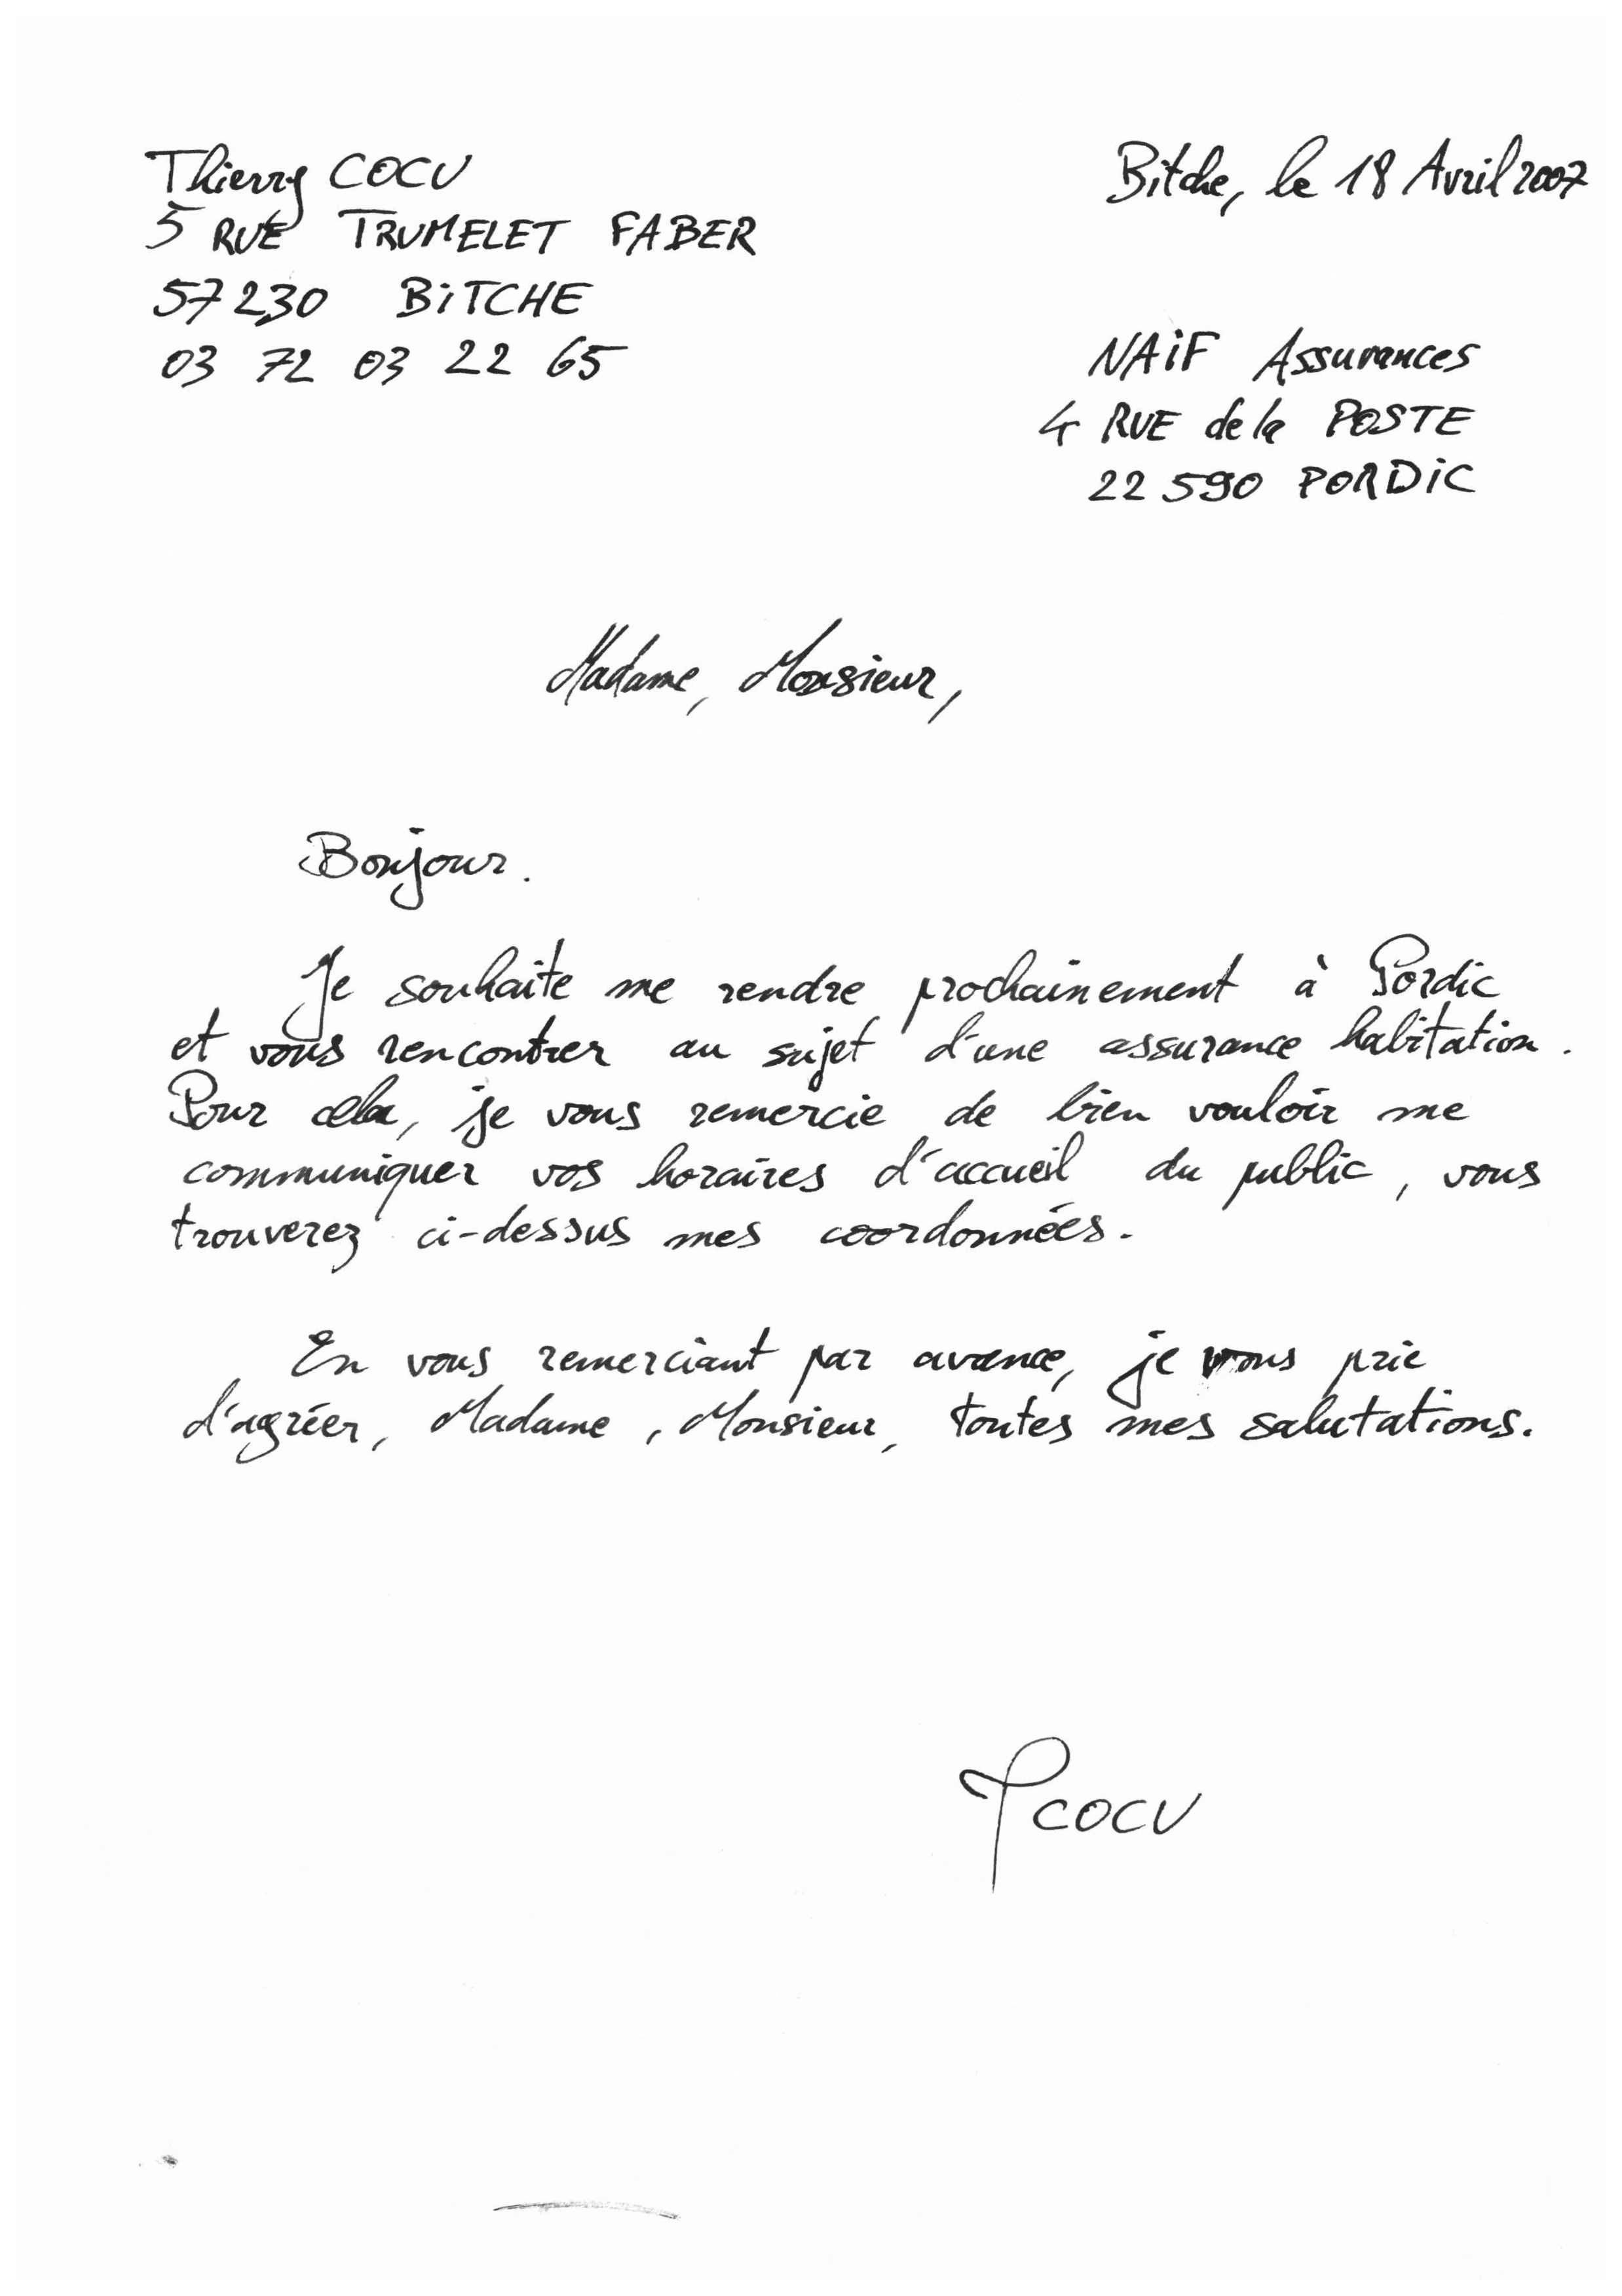 Thierry COCU
5 RUE TRUMELET FABER
57230 BITCHE
03 72 03 22 65
Bitche, le 18 Avril 2007
NAIF Assurances
4 RUE de la POSTE
22 590 PORDIC
Madame, Monsieur,
Bonjour.
Je souhaite me rendre prochainement à Pordic
et vous rencontrer au sujet d'une assurance habitation.
Pour cela, je vous remercie de bien vouloir me
communiquer vos horaires d'accueil du public, vous
trouverez ci-dessus mes coordonnées.
En vous remerciant par avance, je vous prie
d'agréer, Madame, Monsieur, toutes mes salutations.
T COCU